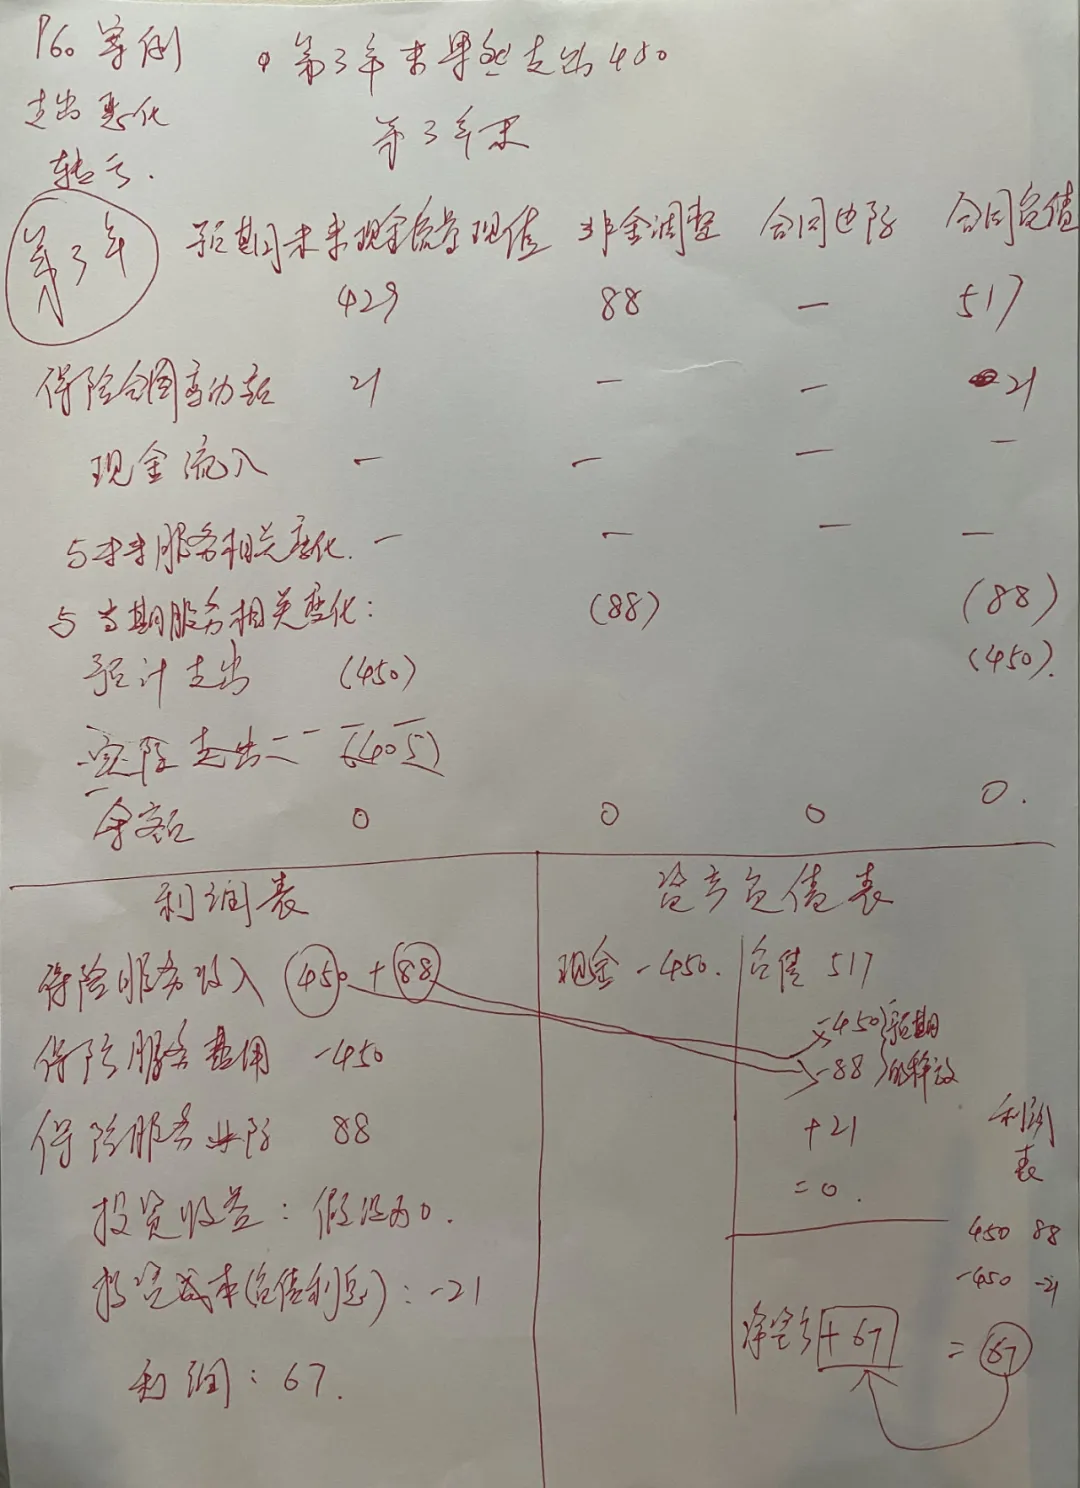 P60 案例
支出恶化
转亏.
第3年末果然支出450
第3年末
第3年
预期未来现金流量现值 非金调整 合同边际 合同负债
429 88 — 517
保险合同变动额 21 — — 21
现金流入 — — — —
与未来服务相关变化. — — — —
与当期服务相关变化: (88) (88)
预计支出 (450) (450).
实际支出 (405)
余额 0 0 0 0.
利润表
保险服务收入 450 + 88
保险服务费用 -450
保险服务业绩 88
投资收益: 假设为0.
投资成本(负债利息): -21
利润: 67.
资产负债表
现金 -450. 负债 517
-450 预期
-88 的释放
+21
= 0.
利润表
450 88
-450 -21
净资产 + 67 = 67